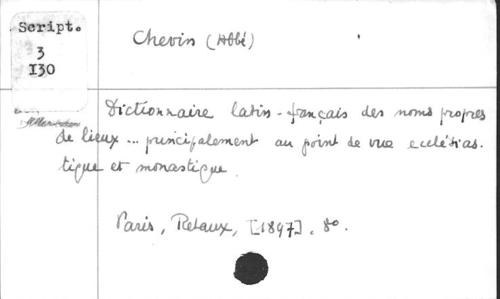 Script.
3
I30
Chevin (Abbé)
Dictionnaire latin-français des noms propres
de lieux ... principalement au point de vue ecclésias.
tique et monastique.
Paris, Retaux, [1897]. 8º.